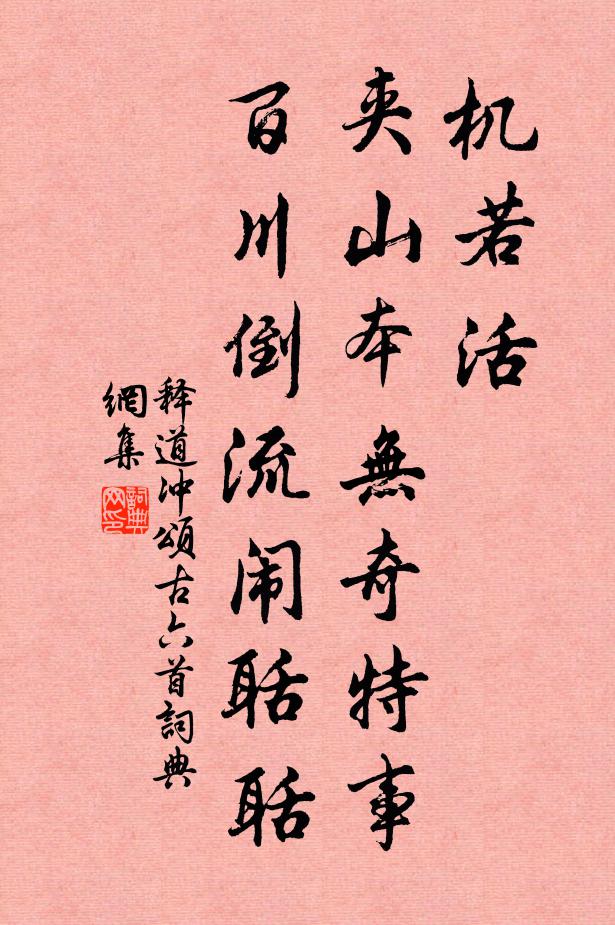 机若活
夹山本無奇特事
百川倒流闹聒聒
释道冲頌古六首詞典
網集
詞典
网印